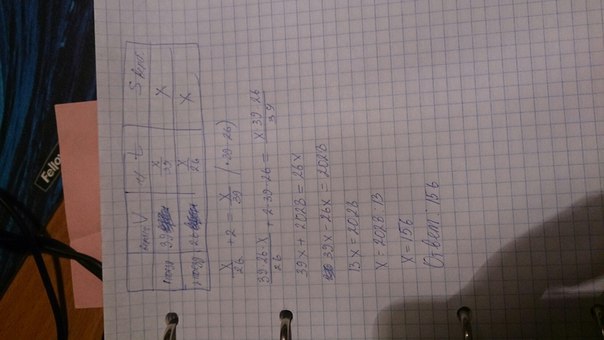 V t S
1 39 x/39 x
2 26 x/26 x
x/26 + 2 = x/39 | (·39·26)
39·26·x/26 + 2·39·26 = x·39·26/39
39x + 2028 = 26x
39x - 26x = 2028
13x = 2028
x = 2028:13
x = 156
Ответ 156
Fellow